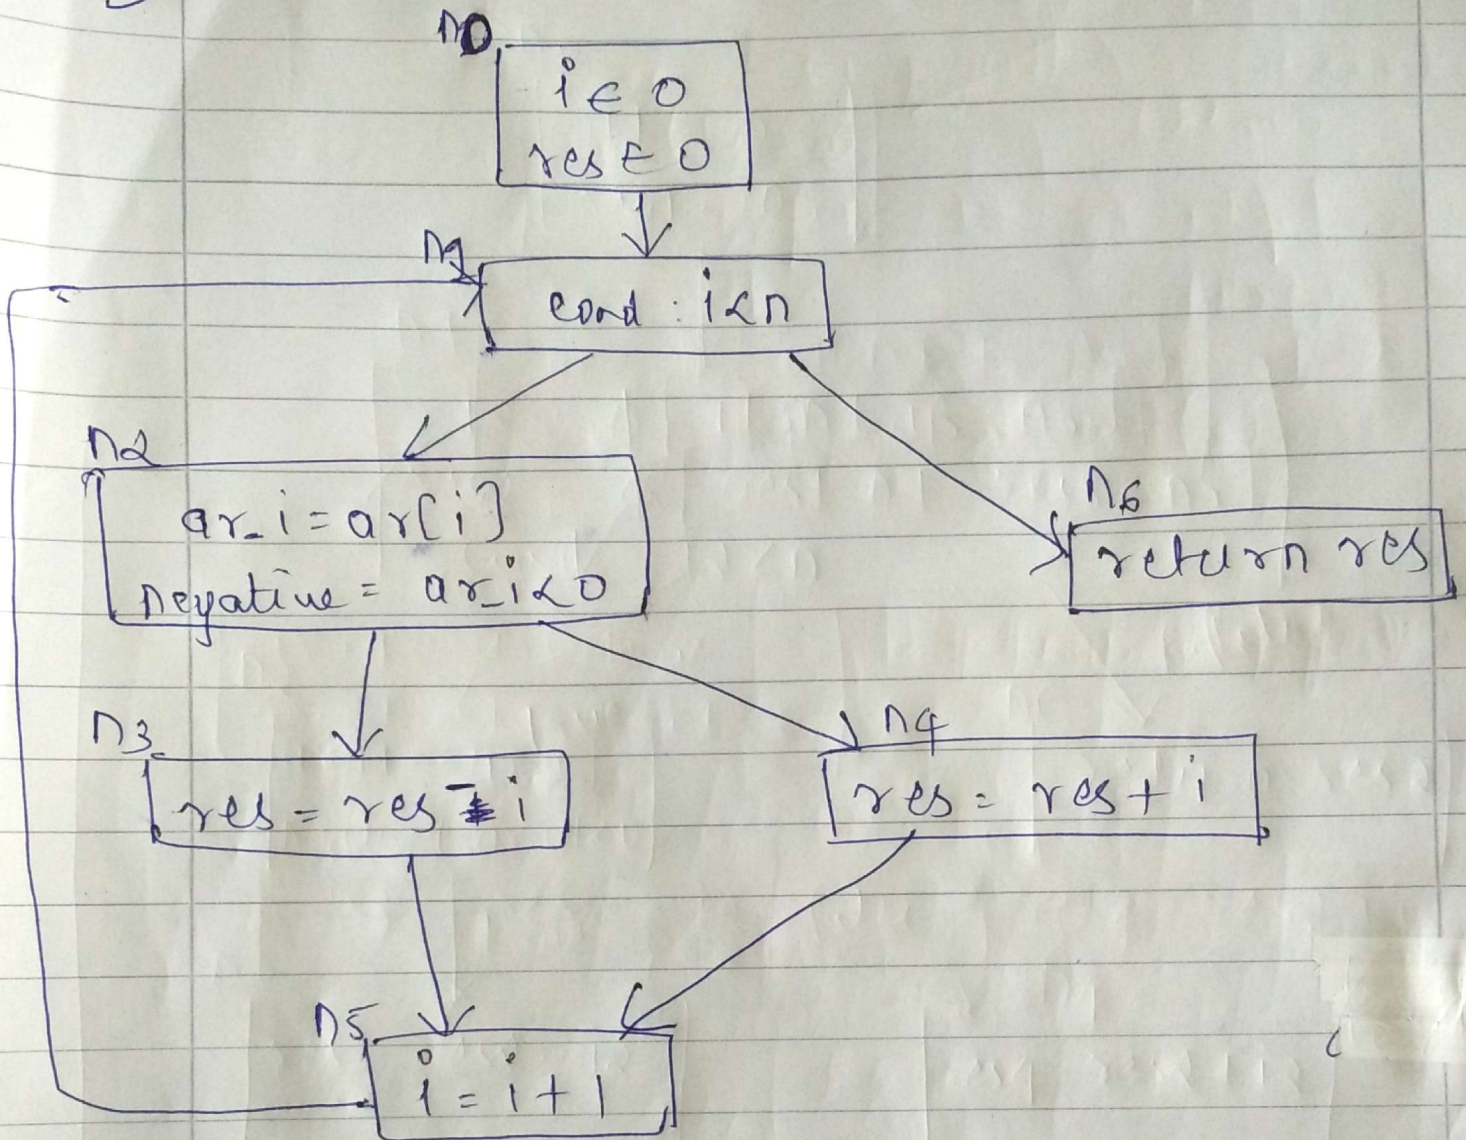 n0
i ← 0
res ← 0
n1
cond : i<n
n2
ar_i = ar[i]
negative = ar_i<0
n6
return res
n3
res = res - i
n4
res = res + i
n5
i = i + 1